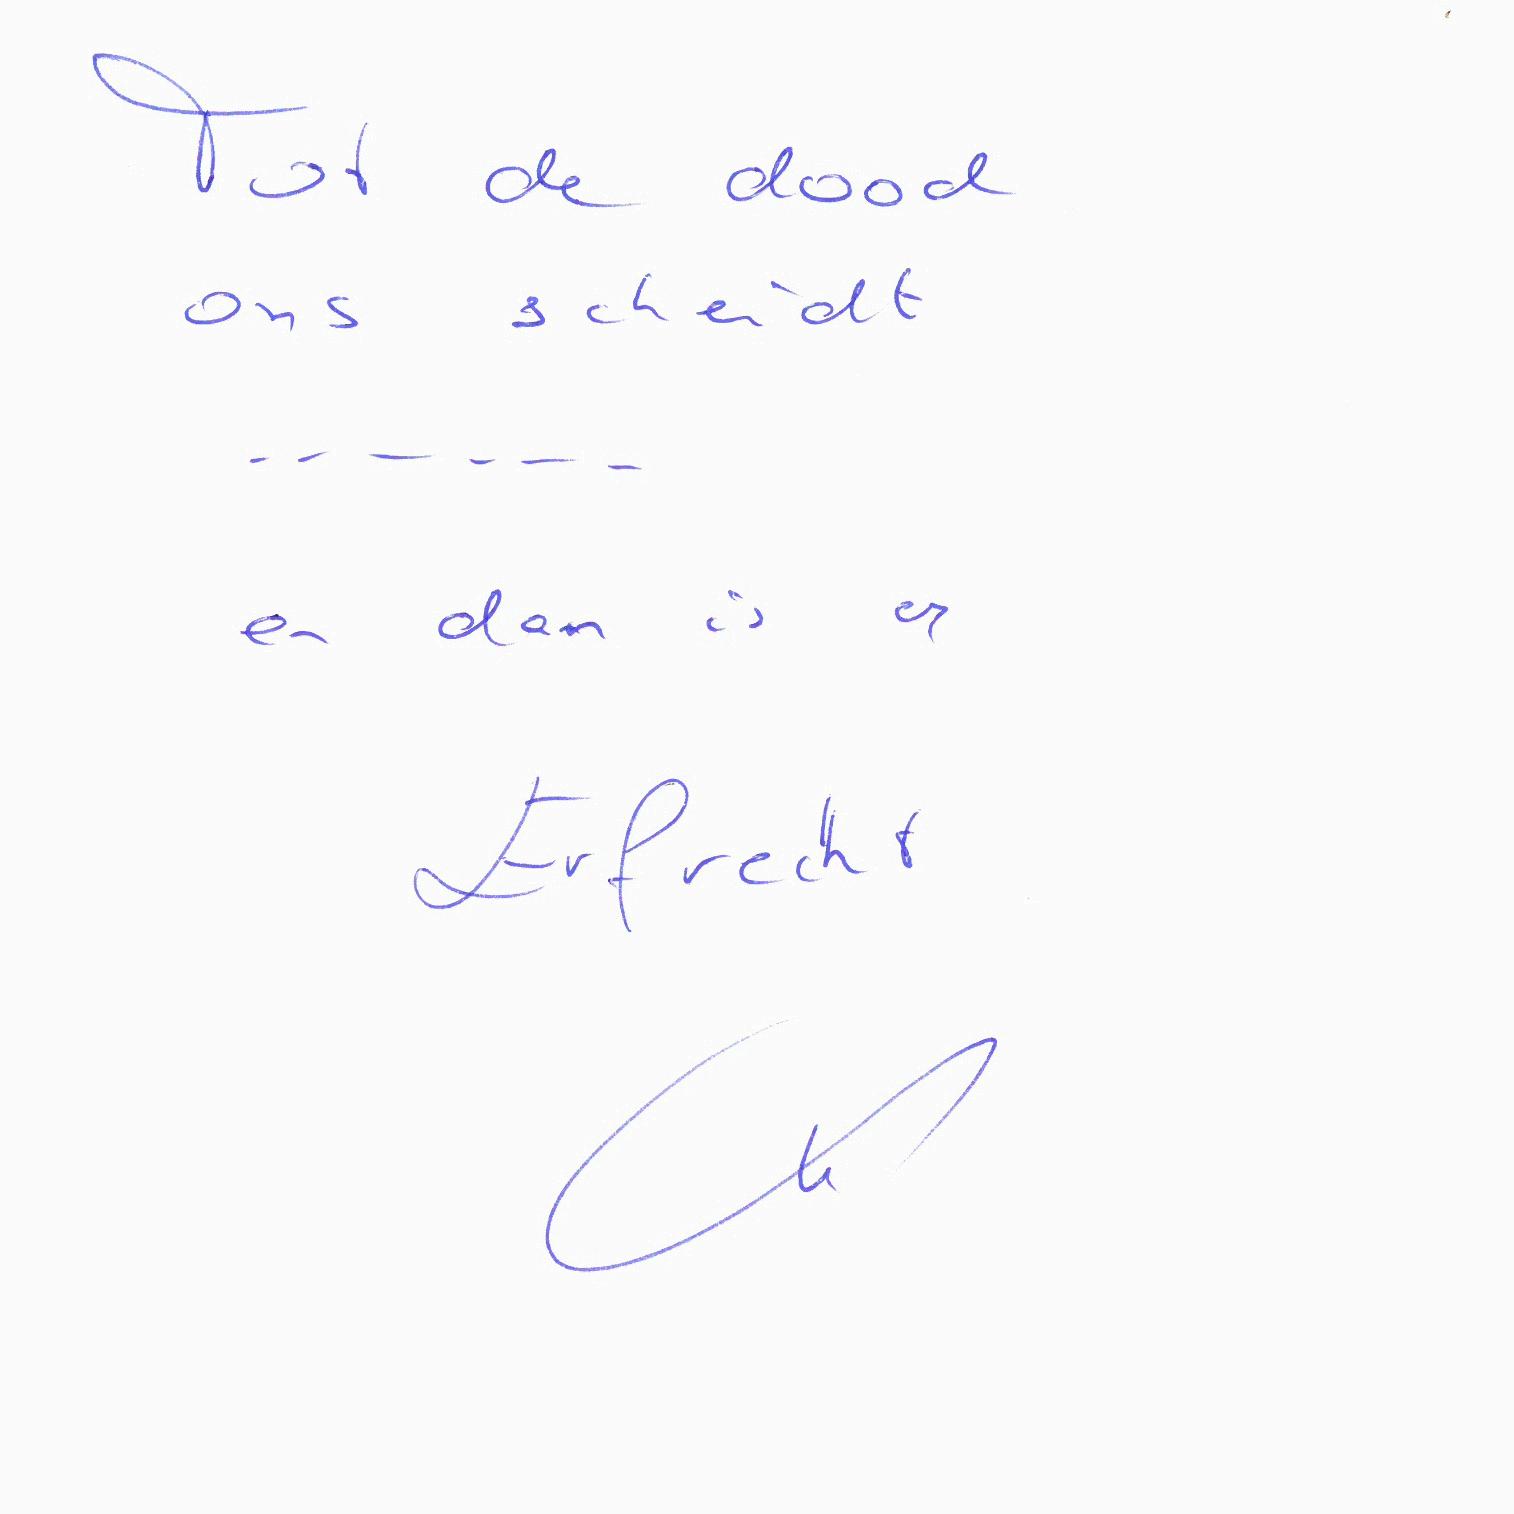 Tot de dood
ons scheidt
------
en dan is er
Erfrecht